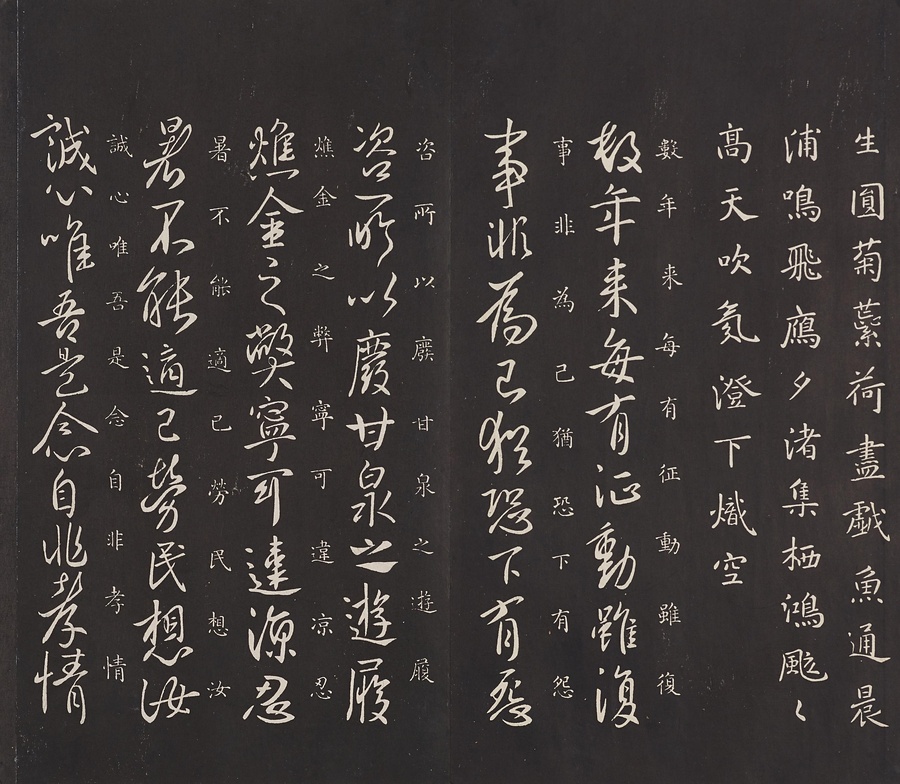 生圓菊蘂荷盡戯魚通晨
浦鳴飛鴈夕渚集栖鴻颯〻
高天吹氛澄下熾空
數年来每有征動雖復
數年来每有征動雖復
事非為己猶恐下有怨
事非為己猶恐下有怨
咨所以廢甘泉之遊履
咨所以廢甘泉之遊履
燋金之弊寧可違凉忍
燋金之弊寧可違凉忍
暑不能適己勞民想汝
暑不能適己勞民想汝
誠心唯吾是念自非孝情
誠心唯吾是念自非孝情